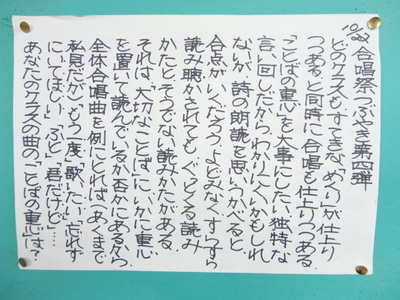 10/22 合唱祭つぶやき第四弾
どのクラスもすてきな「めくり」が仕上り
つつある。と同時に合唱も仕上りつつある。
「ことばの重心」を大事にしたい。独特な
言い回しだから、わかりにくいかもしれ
ないが、詩の朗読を思いうかべると
合点がいくだろう。よどみなくすらすら
読み聴かされても、ぐっとくる読み
かたと、そうでない読みかたがある。
それは、大切な「ことば」にいかに重心
を置いて読んでいるか否かにあるから。
全体合唱曲を例にとれば、あくまで
私見だが、「もう一度」歌いたい、「忘れず
にいてほしい」「ふと」「君だけど」…
あなたのクラスの曲の「ことばの重心」は?